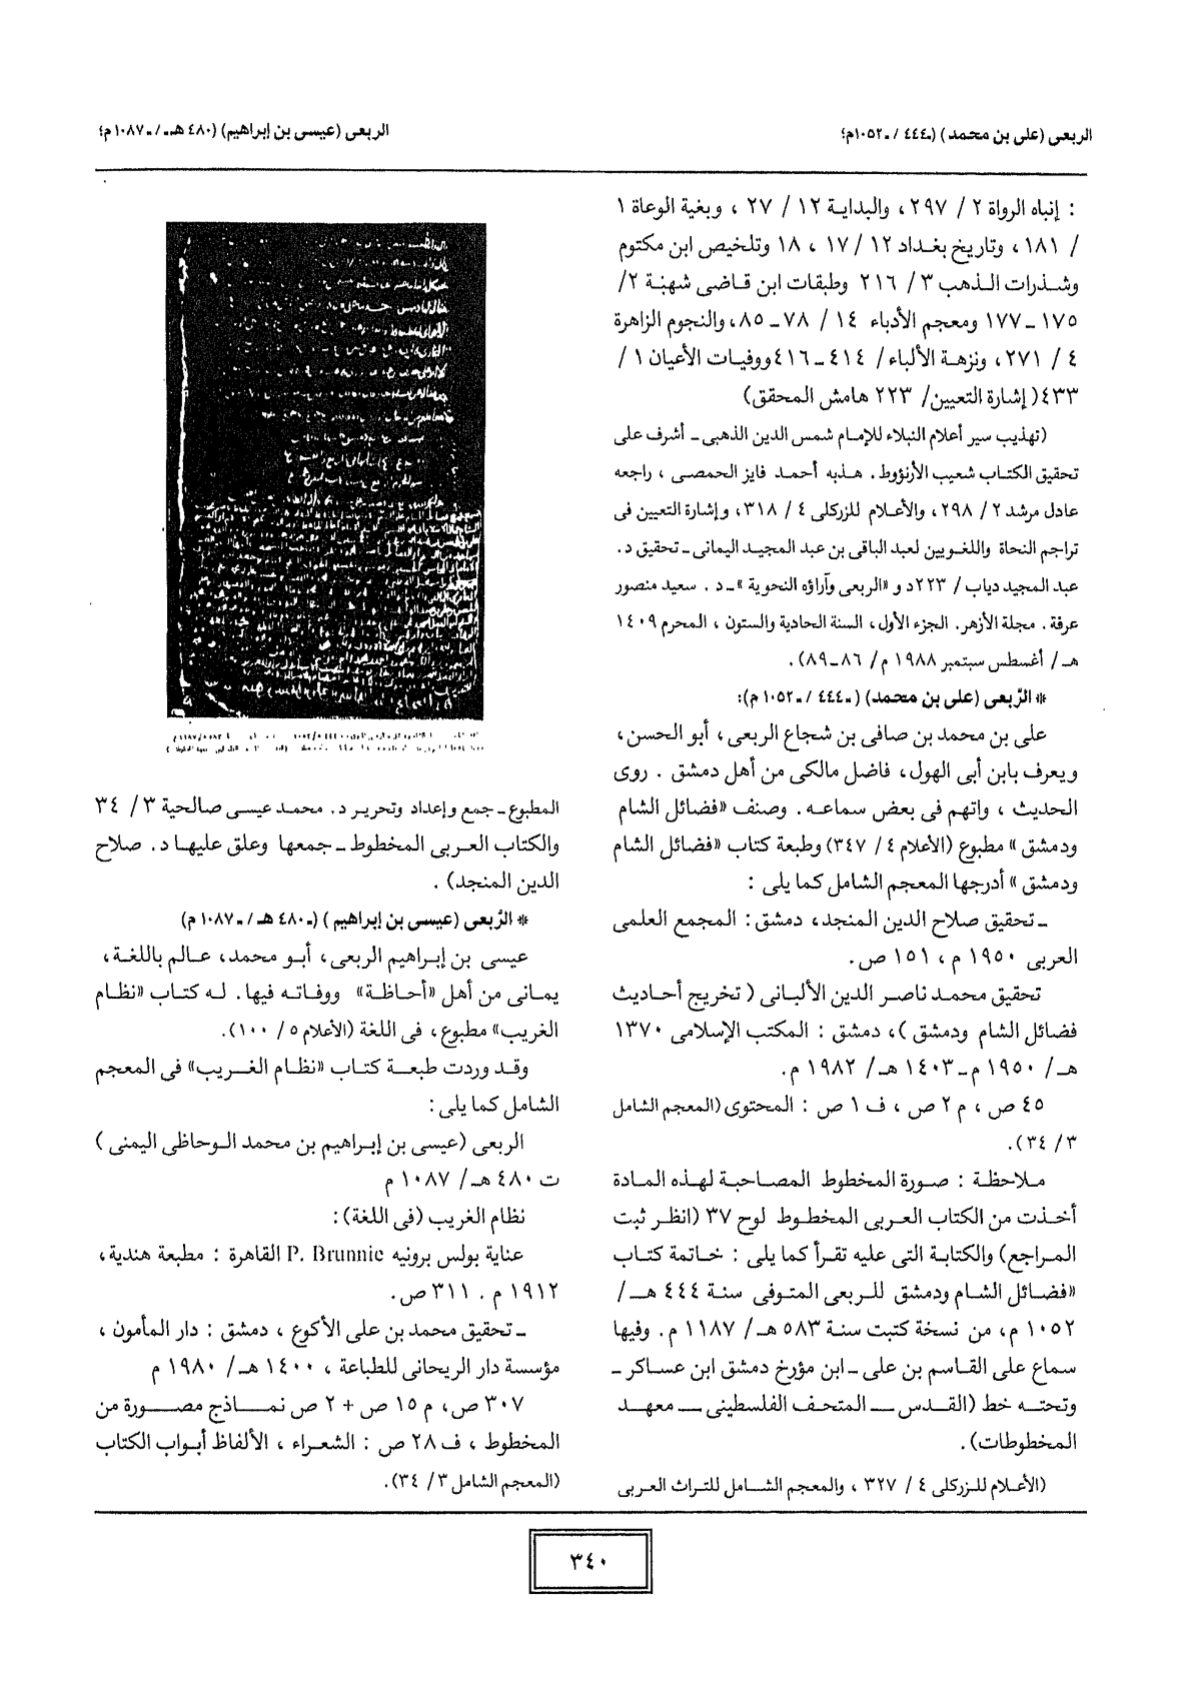 الربعى (على بن محمد) (ـ٤٤٤ / ـ١٠٥٢م)؛
الربعى (عيسى بن إبراهيم) (ـ٤٨٠ هـ / ـ١٠٨٧ م)؛
: إنباه الرواة ٢ / ٢٩٧، والبداية ١٢ / ٢٧ ، وبغية الوعاة ١
/ ١٨١ ، وتاريخ بغداد ١٢ / ١٧ ، ١٨ وتلخيص ابن مكتوم
وشذرات الذهب ٣ / ٢١٦ وطبقات ابن قاضى شهبة ٢/
١٧٥ ـ ١٧٧ ومعجم الأدباء ١٤ / ٧٨ ـ ٨٥، والنجوم الزاهرة
٤ / ٢٧١، ونزهة الألباء/ ٤١٤ ـ ٤١٦ ووفيات الأعيان ١ /
٤٣٣( إشارة التعيين/ ٢٢٣ هامش المحقق)
(تهذيب سير أعلام النبلاء للإمام شمس الدين الذهبى ـ أشرف على
تحقيق الكتاب شعيب الأرنؤوط . هذبه أحمد فايز الحمصى ، راجعه
عادل مرشد ٢ / ٢٩٨، والأعلام للزركلى ٤ / ٣١٨، وإشارة التعيين فى
تراجم النحاة واللغويين لعبد الباقى بن عبد المجيد اليمانى ـ تحقيق د.
عبد المجيد دياب / ٢٢٣ د و «الربعى وآراؤه النحوية » ـ د . سعيد منصور
عرفة . مجلة الأزهر. الجزء الأول، السنة الحادية والستون ، المحرم ١٤٠٩
هـ / أغسطس سبتمبر ١٩٨٨ م/ ٨٦ ـ ٨٩).
* الرَّبعى (على بن محمد) (ـ ٤٤٤ / ـ ١٠٥٢ م):
على بن محمد بن صافى بن شجاع الربعى، أبو الحسن،
ويعرف بابن أبى الهول، فاضل مالكى من أهل دمشق . روى
الحديث ، واتهم فى بعض سماعه . وصنف «فضائل الشام
ودمشق » مطبوع (الأعلام ٤ / ٣٤٧) وطبعة كتاب «فضائل الشام
ودمشق » أدرجها المعجم الشامل كما يلى :
ـ تحقيق صلاح الدين المنجد، دمشق: المجمع العلمى
العربى ١٩٥٠ م ، ١٥١ ص .
تحقيق محمد ناصر الدين الألبانى ( تخريج أحاديث
فضائل الشام ودمشق )، دمشق : المكتب الإسلامى ١٣٧٠
هـ / ١٩٥٠ م ـ ١٤٠٣ هـ / ١٩٨٢ م .
٤٥ ص ، م ٢ ص ، ف ١ ص : المحتوى (المعجم الشامل
٣ / ٣٤).
ملاحظة : صورة المخطوط المصاحبة لهذه المادة
أخذت من الكتاب العربى المخطوط لوح ٣٧ (انظر ثبت
المراجع) والكتابة التى عليه تقرأ كما يلى : خاتمة كتاب
«فضائل الشام ودمشق للربعى المتوفى سنة ٤٤٤ هـ /
١٠٥٢ م، من نسخة كتبت سنة ٥٨٣ هـ / ١١٨٧ م . وفيها
سماع على القاسم بن على ـ ابن مؤرخ دمشق ابن عساكر ـ
وتحته خط (القدس ـ المتحف الفلسطينى ـ معهد
المخطوطات).
(الأعلام للزركلى ٤ / ٣٢٧ ، والمعجم الشامل للتراث العربى
المطبوع ـ جمع وإعداد وتحرير د. محمد عيسى صالحية ٣ / ٣٤
والكتاب العربى المخطوط ـ جمعها وعلق عليها د. صلاح
الدين المنجد) .
* الرَّبعى (عيسى بن إبراهيم ) (ـ ٤٨٠ هـ / ـ ١٠٨٧ م)
عيسى بن إبراهيم الربعى، أبو محمد، عالم باللغة،
يمانى من أهل «أحاظة» ووفاته فيها. له كتاب «نظام
الغريب» مطبوع، فى اللغة (الأعلام ٥ / ١٠٠).
وقد وردت طبعة كتاب «نظام الغريب» فى المعجم
الشامل كما يلى:
الربعى (عيسى بن إبراهيم بن محمد الوحاظى اليمنى )
ت ٤٨٠ هـ / ١٠٨٧ م
نظام الغريب (فى اللغة):
عناية بولس برونيه P. Brunnie القاهرة : مطبعة هندية،
١٩١٢ م . ٣١١ ص .
ـ تحقيق محمد بن على الأكوع ، دمشق : دار المأمون ،
مؤسسة دار الريحانى للطباعة ، ١٤٠٠ هـ / ١٩٨٠ م
٣٠٧ ص، م ١٥ ص + ٢ ص نماذج مصورة من
المخطوط ، ف ٢٨ ص : الشعراء ، الألفاظ أبواب الكتاب
(المعجم الشامل ٣ / ٣٤).
٣٤٠